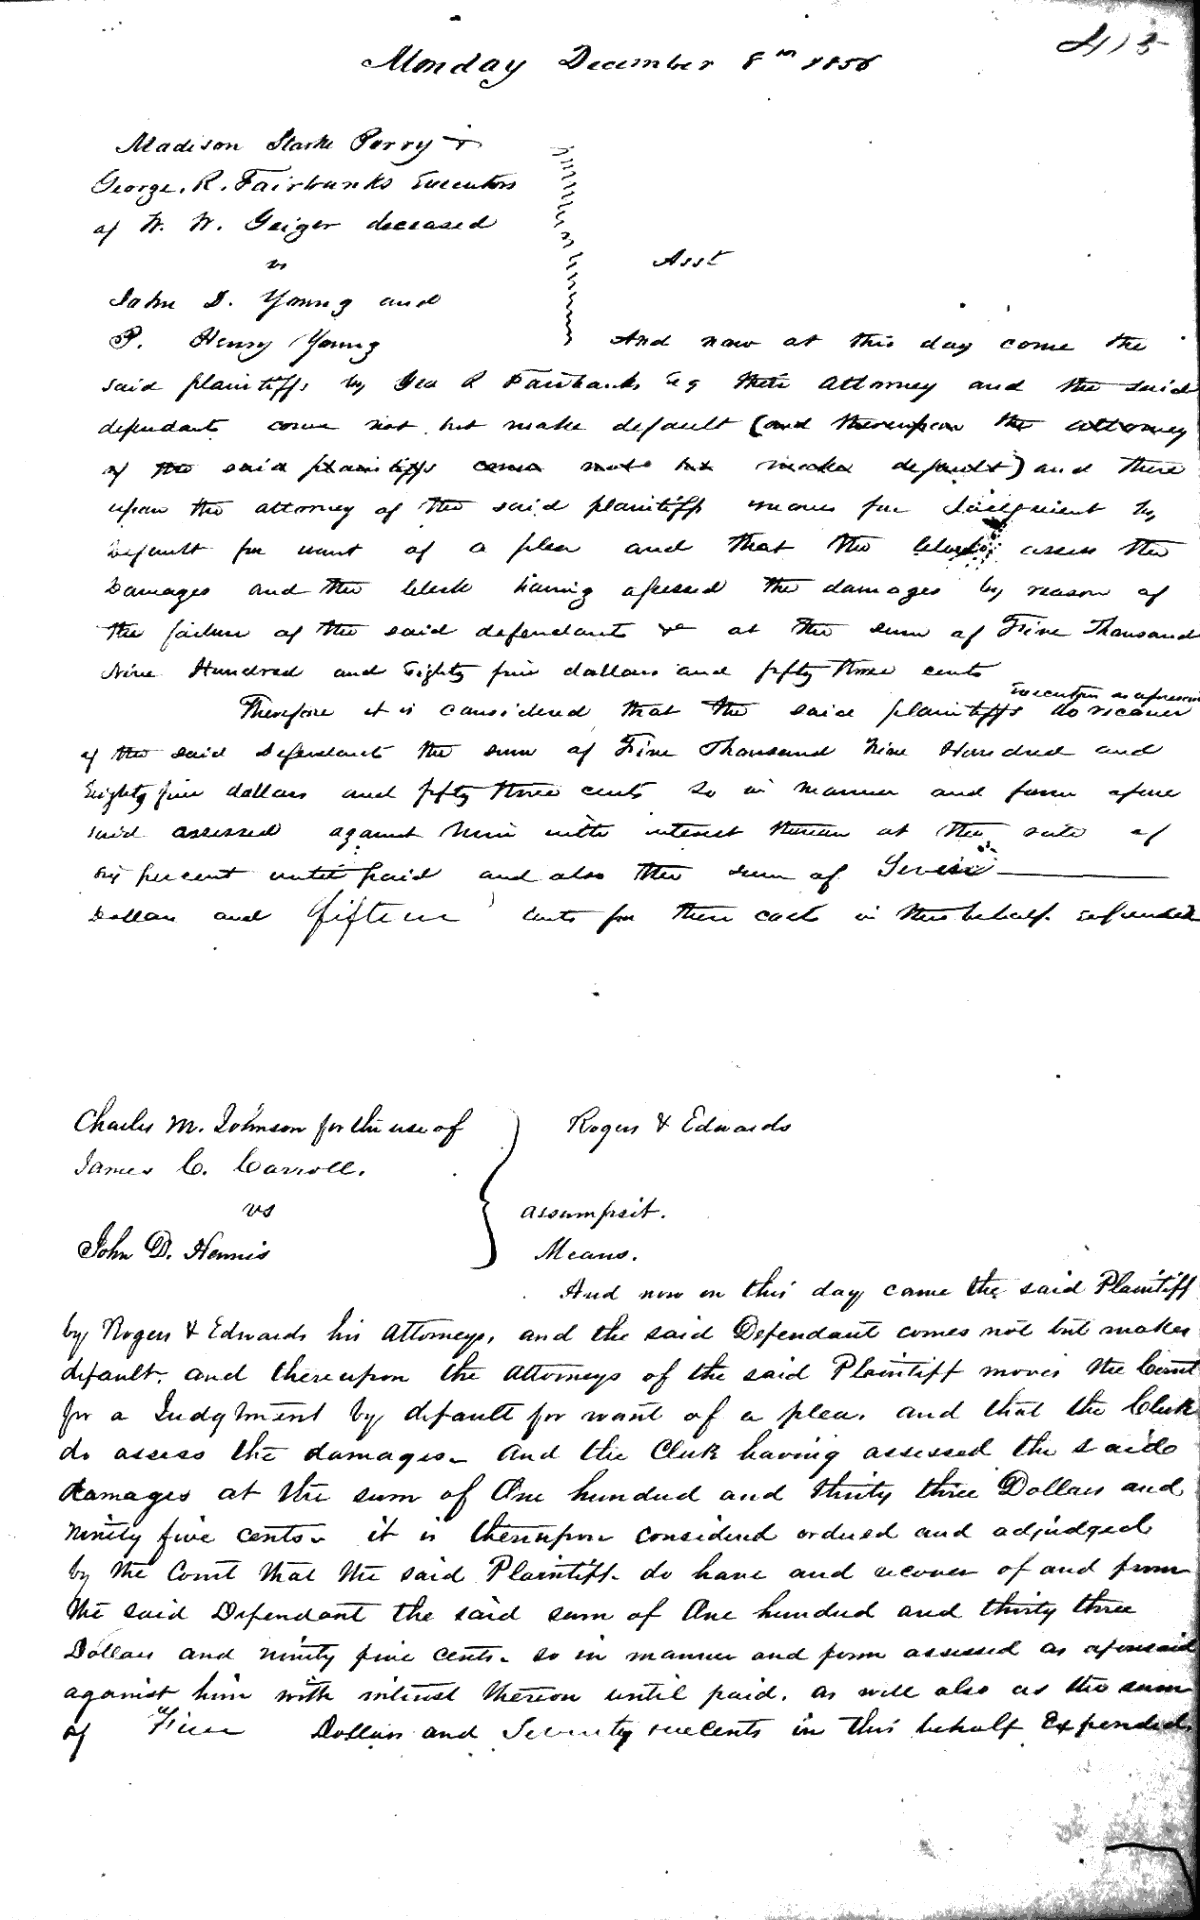 413
Monday December 8th 1856
Madison Starke Perry &
George. R. Fairbanks Executors
of W. W. Geiger deceased
vs
John D. Young and
P. Henry Young
Asst
And now at this day come the
said plaintiffs by Geo R Fairbanks Esq their attorney and the said
defendants come not but make default (and thereupon the attorney
of the said plaintiffs comes not but makes default) and there
upon the attorney of the said plaintiffs moves for Judgment by
default for want of a plea and that the Clerk assess the
Damages and the Clerk having assessed the damages by reason of
the failure of the said defendants &c at the sum of Five Thousand
Nine Hundred and Eighty five dollars and fifty three cents
Therefore it is considered that the said plaintiffs Executors as aforesaid do recover
of the said Defendants the sum of Five Thousand Nine Hundred and
Eighty five dollars and fifty three cents so in manner and form afore
said assessed against him with interest thereon at the rate of
six per cent until paid and also the sum of Seven
Dollars and fifteen cents for their costs in this behalf expended
Charles M. Johnson for the use of
James C. Carroll.
vs
John D. Hennis
Rogers & Edwards
assumpsit.
Means.
And now on this day came the said Plaintiff
by Rogers & Edwards his Attorneys, and the said Defendant comes not but makes
default. and thereupon the attorneys of the said Plaintiff moves the Court
for a Judgment by default for want of a plea. and that the Clerk
do assess the damages. and the Clerk having assessed the said
damages at the sum of One hundred and thirty three Dollars and
ninety five cents. it is thereupon considered ordered and adjudged
by the Court that the said Plaintiff do have and recover of and from
the said Defendant the said sum of One hundred and thirty three
Dollars and ninety five cents. so in manner and form assessed as aforesaid
against him with interest thereon until paid. as well also as the sum
of Dollars and Seventy cents in this behalf Expended.